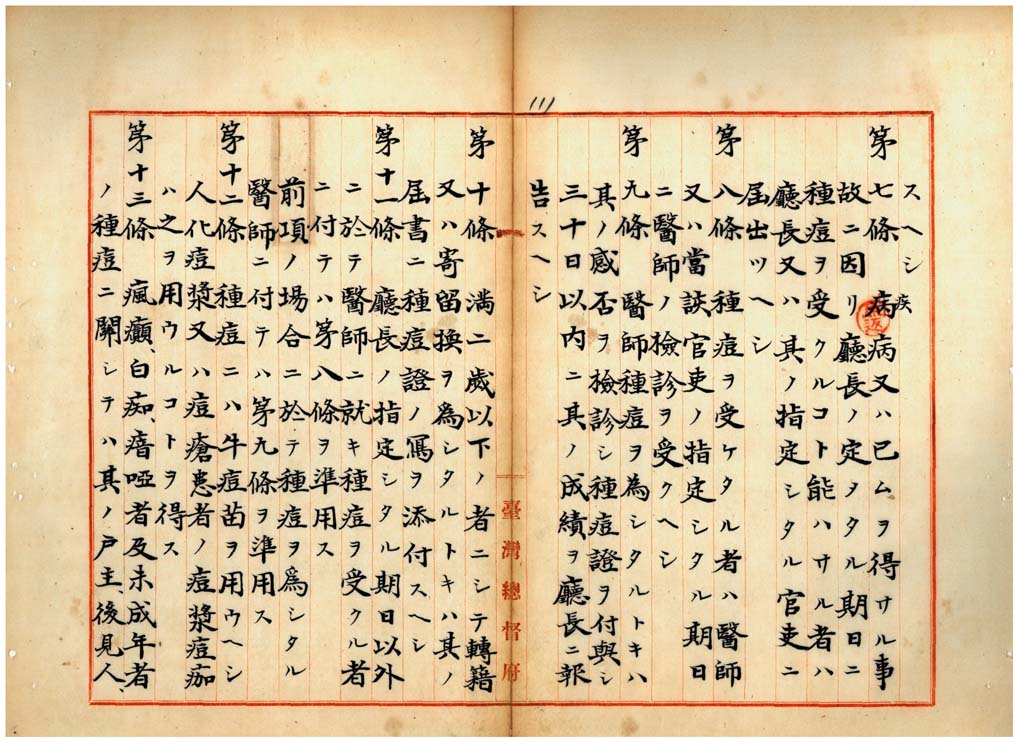 111
スヘシ
第七條 疾病又ハ已ムヲ得サル事
故ニ因リ廳長ノ定メタル期日ニ
種痘ヲ受クルコト能ハサル者ハ
廳長又ハ其ノ指定シタル官吏ニ
屆出ツヘシ
第八條 種痘ヲ受ケタル者ハ醫師
又ハ當該官吏ノ指定シタル期日
ニ醫師ノ檢診ヲ受クヘシ
第九條 醫師種痘ヲ為シタルトキハ
其ノ感否ヲ檢診シ種痘證ヲ付與シ
三十日以内ニ其ノ成績ヲ廳長ニ報
告スヘシ
臺灣總督府
第十條 滿二歲以下ノ者ニシテ轉籍
又ハ寄留換ヲ為シタルトキハ其ノ
屆書ニ種痘證ノ寫ヲ添付スヘシ
第十一條 廳長ノ指定シタル期日以外
ニ於テ醫師ニ就キ種痘ヲ受クル者
ニ付テハ第八條ヲ準用ス
前項ノ場合ニ於テ種痘ヲ為シタル
醫師ニ付テハ第九條ヲ準用ス
第十二條 種痘ニハ牛痘苗ヲ用ウヘシ
人化痘漿又ハ痘瘡患者ノ痘漿痘痂
ハ之ヲ用ウルコトヲ得ス
第十三條 瘋癲、白痴、瘖啞者及未成年者
ノ種痘ニ關シテハ其ノ戶主、後見人、